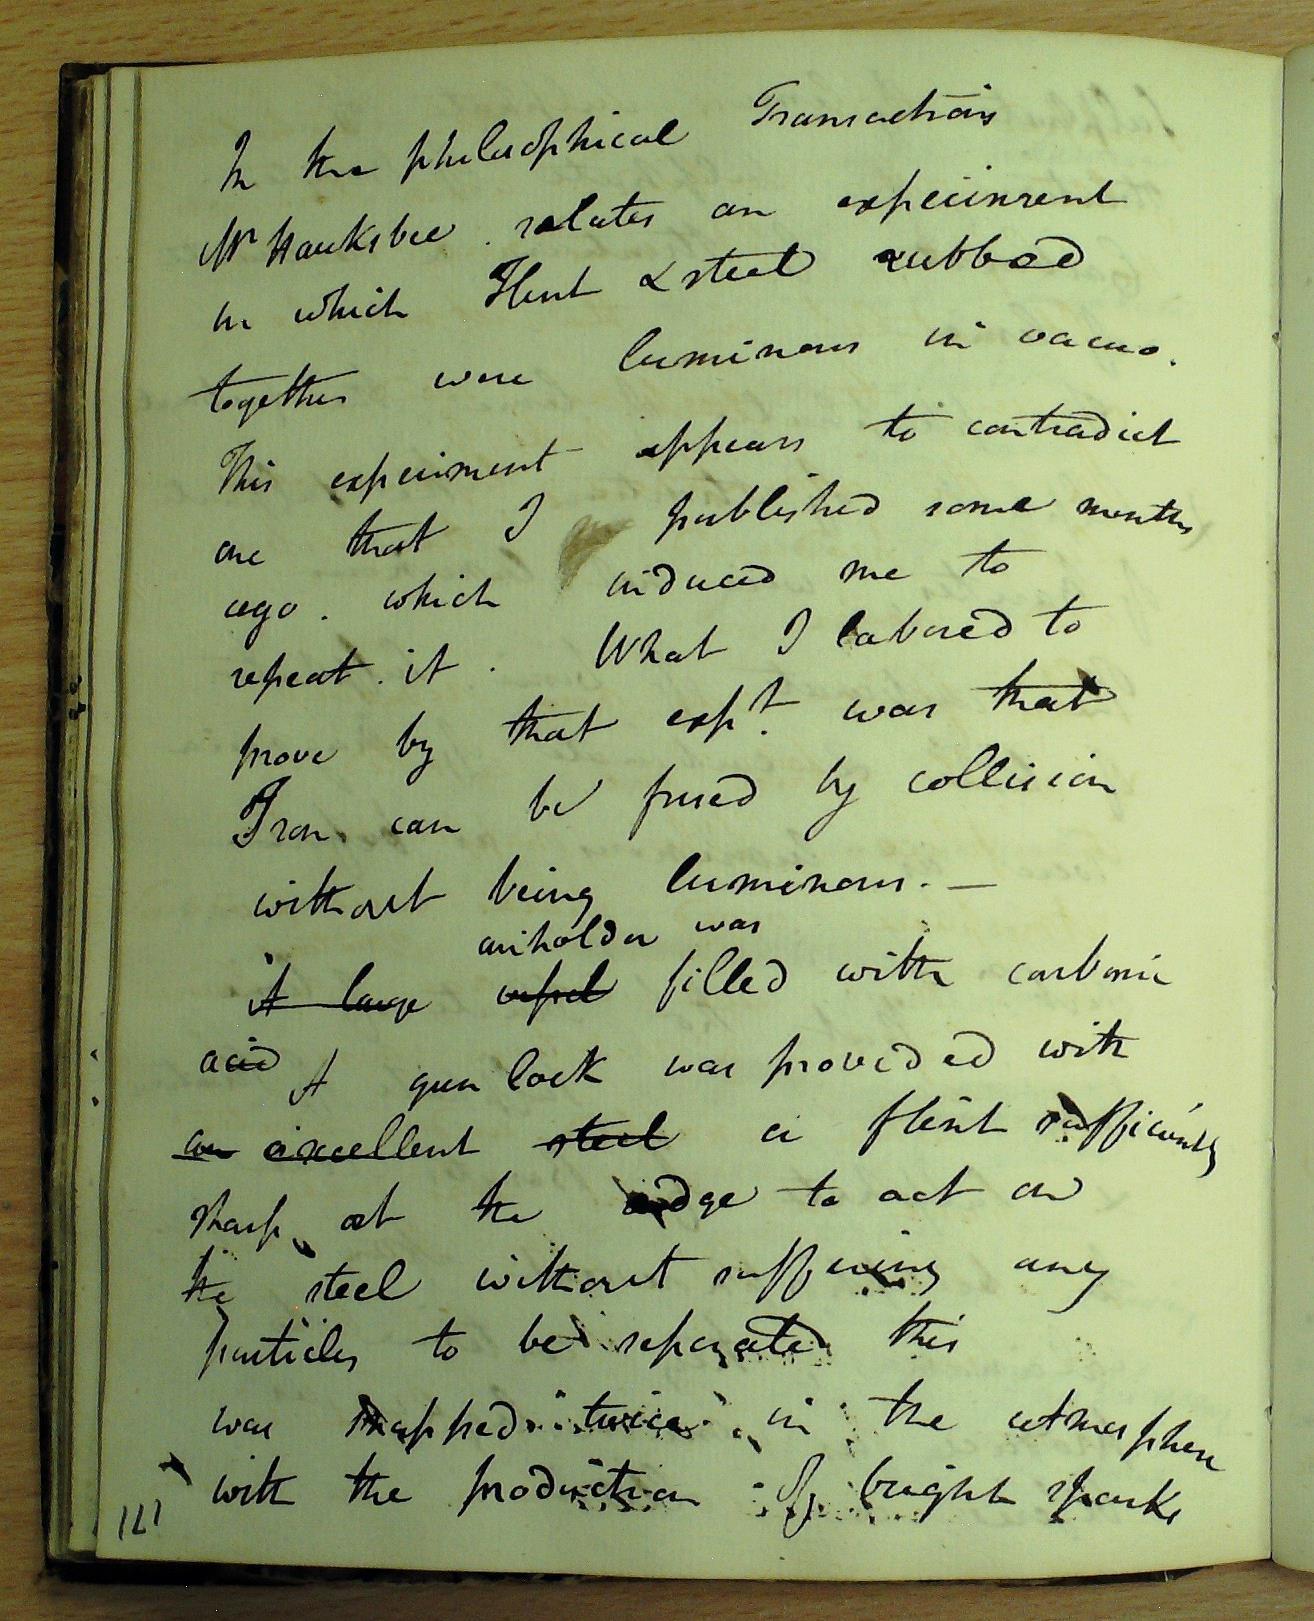 In the philosophical Transactions
Mr Hauksbee. relates an experiment
in which Flint & steel rubbed
together were luminous in vacuo.
This experiment appears to contradict
one that I published some months
ago. which induced me to
repeat. it. What I labored to
prove by that expt. was that
Iron can be fused by collision
without being luminous. —
airholder was
A large vessel filled with carbonic
acid A gun lock was provided with
an excellent steel a flint sufficiently
sharp at the edge to act on
the steel without suffering any
particles to be separated this
was snapped twice in the atmosphere
with the production of bright sparks
121